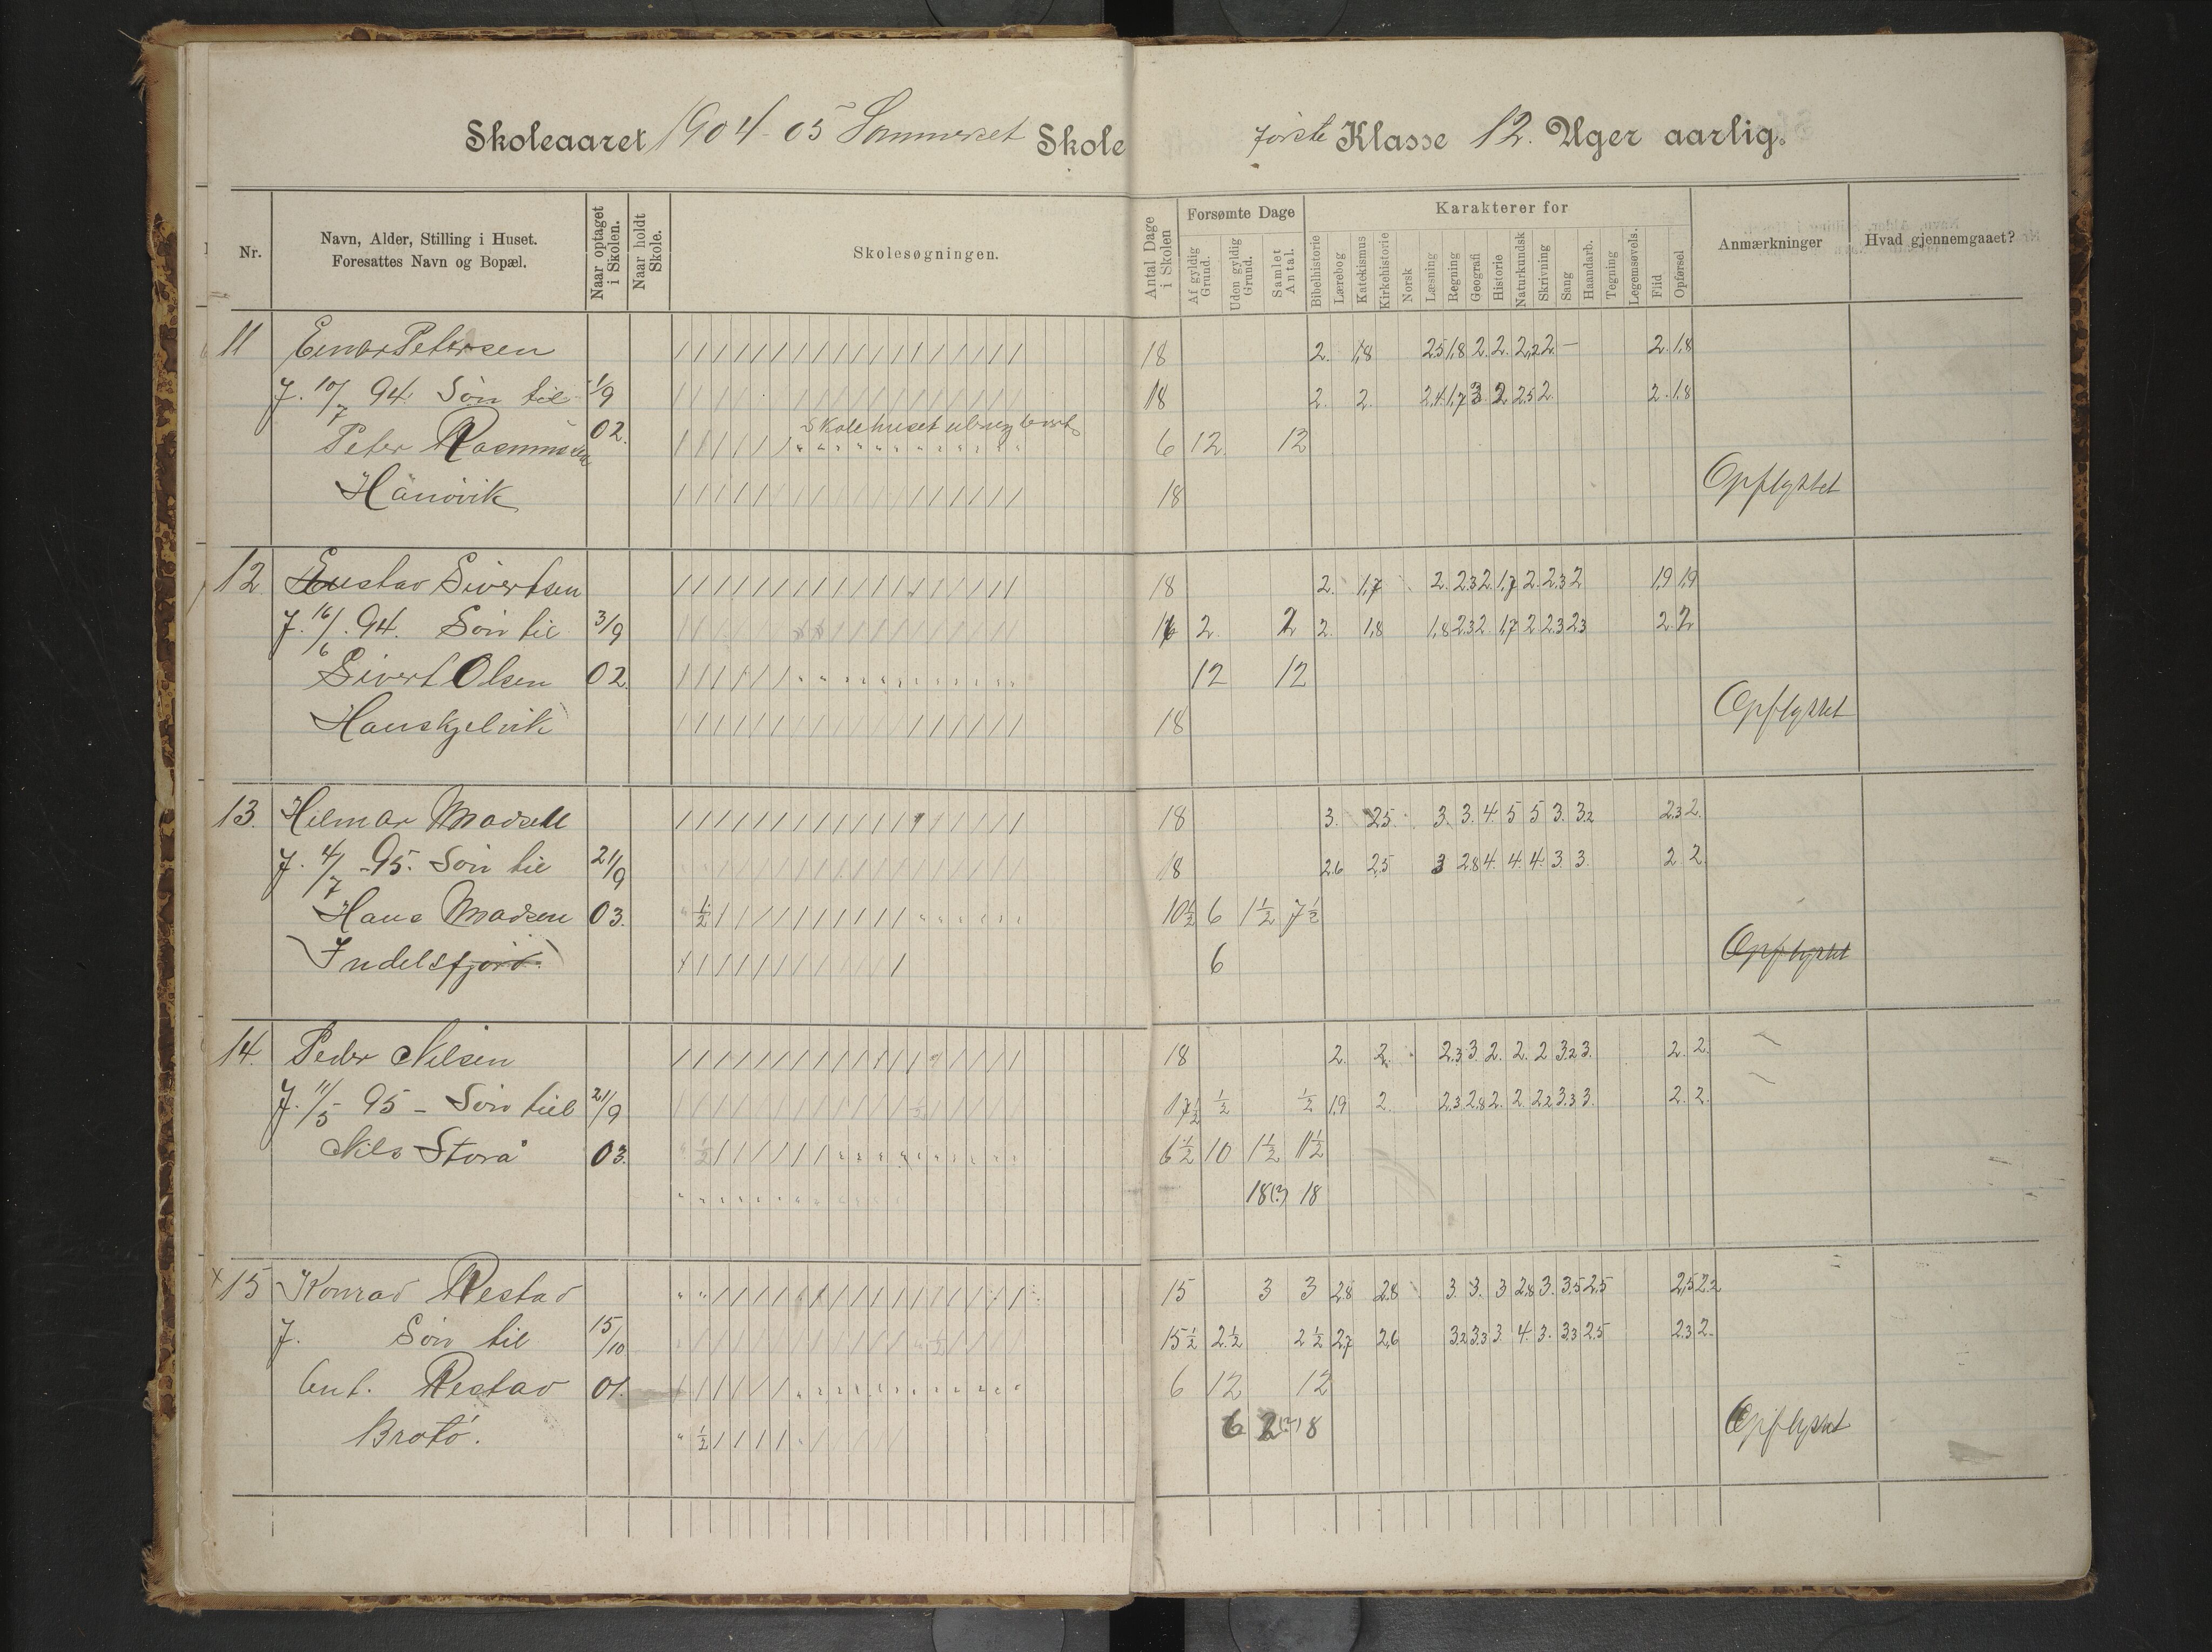 Skoleaaret 1904-05 Sommerset Skole første Klasse 12. Uger aarlig.
Nr. Navn, Alder, Stilling i Huset. Foresattes Navn og Bopæl. Naar optaget i Skolen. Naar holdt Skole. Skolesøgningen. Antal Dage i Skolen Forsømte Dage Af gyldig Grund. Uden gyldig Grund. Samlet Antal. Karakterer for Bibelhistorie Lærebog Katekismus Kirkehistorie Norsk Læsning Regning Geografi Historie Naturkundsk Skrivning Sang Haandarb. Tegning Legemsøvels. Flid Opførsel Anmærkninger Hvad gjennemgaaet?
11 Einar Petersen 18 2. 1,8 2,5 1,8 2. 2. 2,2 2. — 2. 1,8
F. 10/7 94. Søn til 1/9 18 2. 2. 2,4 1,7 3 2 2,5 2. 2. 1,8
Skolehuset ubrugbart
Peter Rasmussen 02. 6 12. 12
18 Opflyttet
12. Gustav Sivertsen 18 2. 1,7 2. 2,3 2. 1,7 2. 2,3 2 1,9 1,9
F. 16/6 94. Søn til 3/9 16 2. 2 2. 1,8 1,8 2,3 2. 1,7 2 2,3 2,3 2. 2.
Sivert Olsen 02. 12 12
Hanskjelvik 18 Opflyttet
13. Hilmar Madsen 18 3. 2,5. 3. 3. 4. 5 5 3. 3,2 2,3 2.
F. 4/7 -95. Søn til 21/9 18 2,6 2,5 3 2,8 4. 4. 4. 3. 3. 2. 2.
Hans Madsen 03. ½ 10½ 6 1½ 7½
Indelsfjord. 6 Opflyttet
14. Peder Nilsen 18 2. 2. 2,3 3. 2. 2. 2 3,2 3. 2. 2.
F. 11/5 - 95 - Søn til 21/9 17½ ½ ½ 1,9 2. 2,3 2,8 2. 2 2,2 3,3 3. 2. 2.
Nils Storå 03. ½ 6½ 10 1½ 11½
18(?) 18
15 Konrad Restad 15 3 3 2,8 2,8 3. 3. 3 2,8 3. 3,5 2,5 2,5 2,2
F. Søn til 15/10 15½ 2½ 2½ 2,7 2,6 3,2 3,3 3 4. 3. 3,3 2,5 2,3 2.
Ant. Restad 01. 6 12 12
Brotø. ½ 6 2(?) 8 Opflyttet